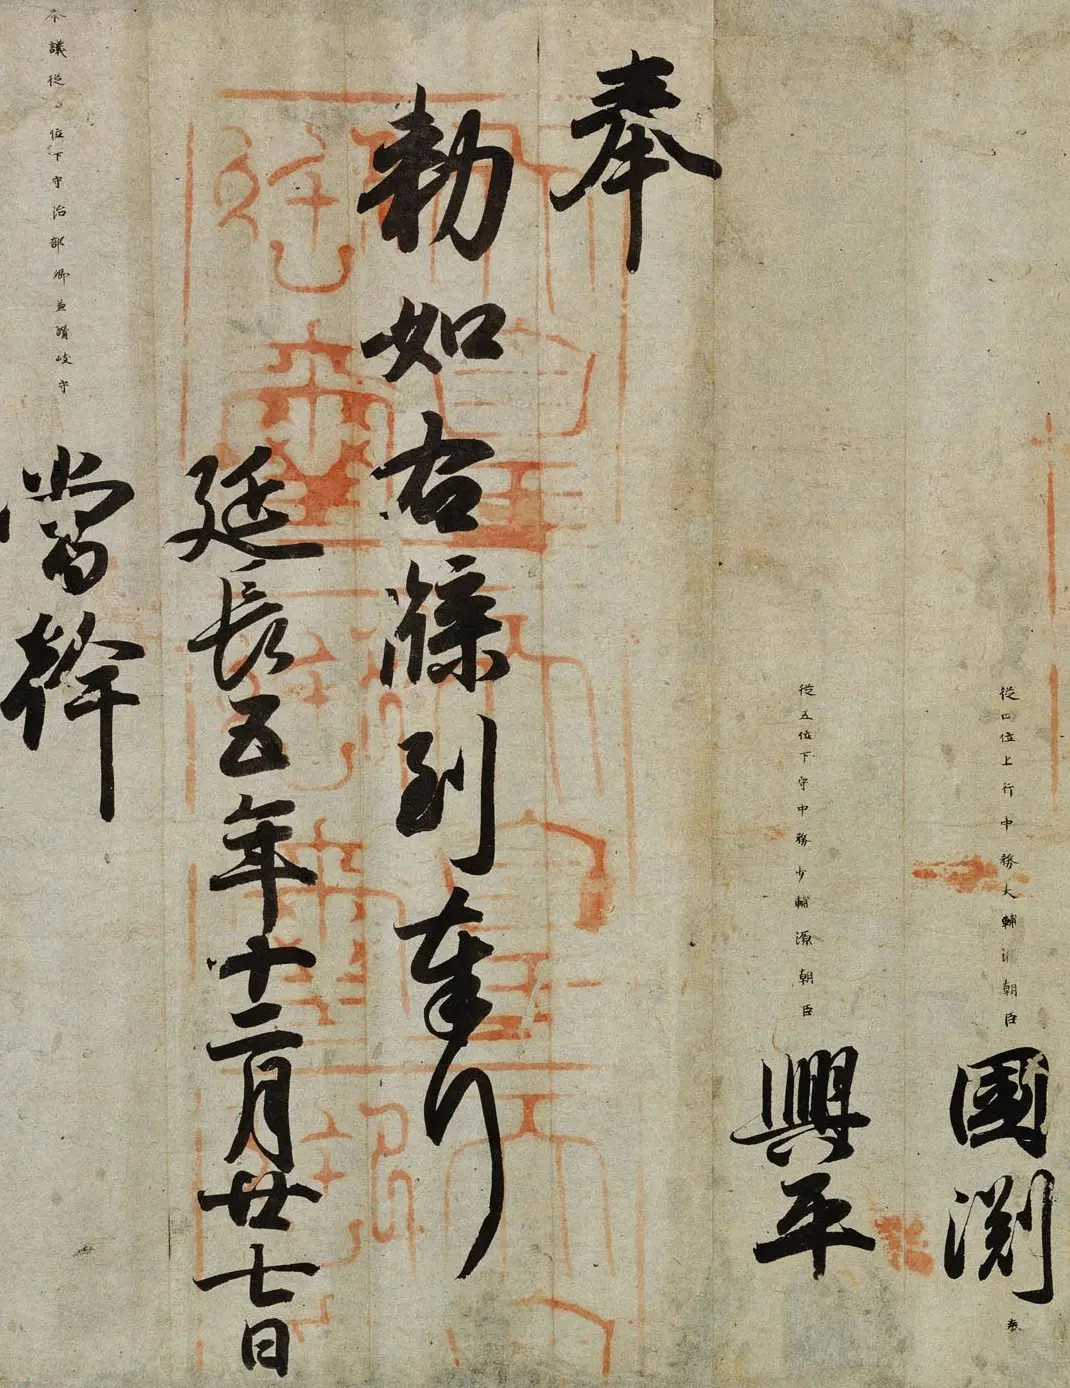 從四位上行中務大輔源朝臣國淵奉
從五位下守中務少輔源朝臣興平
奉
勅如右牒到奉行
延長五年十二月廿七日
參議從四位下守治部卿兼讚岐守當幹